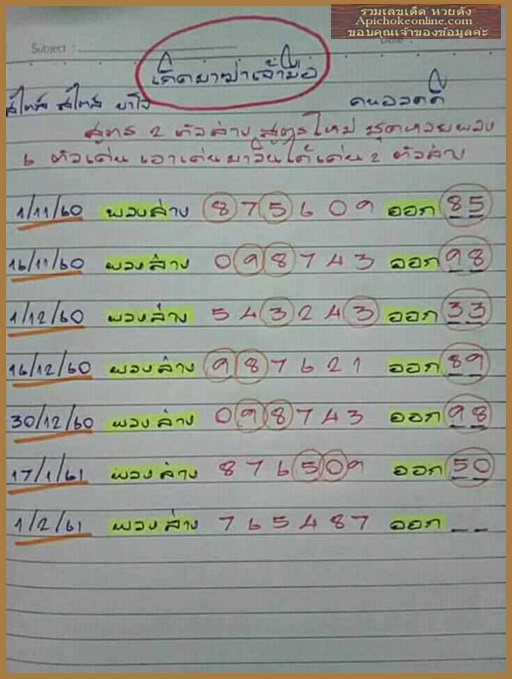 รวมเลขเด็ด หวยดัง
Apichokeonline.com
ขอบคุณเจ้าของข้อมูลค่ะ
Subject :
Date :
สูตร 2 ตัวล่าง สูตรใหม่ ชุดหวยพวง
6 ตัวเด่น เอาเด่นมาวินได้เด่น 2 ตัวล่าง
1/11/60 พวงล่าง 8 7 5 6 0 9 ออก 85
16/11/60 พวงล่าง 0 9 8 7 4 3 ออก 98
1/12/60 พวงล่าง 5 4 3 2 4 3 ออก 33
16/12/60 พวงล่าง 9 8 7 6 2 1 ออก 89
30/12/60 พวงล่าง 0 9 8 7 4 3 ออก 98
17/1/61 พวงล่าง 8 7 6 5 0 9 ออก 50
1/2/61 พวงล่าง 7 6 5 4 8 7 ออก _ _